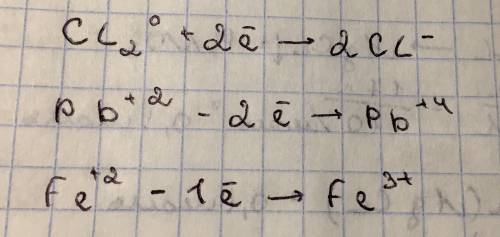 CL₂⁰ + 2ē → 2CL⁻
Pb⁺² - 2ē → Pb⁺⁴
Fe⁺² - 1ē → Fe³⁺